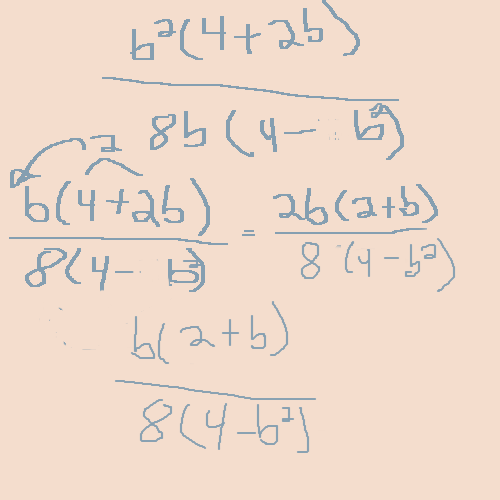 b²(4+2b)
8b(4-b²)
2
b(4+2b) / 8(4-b²) = 2b(2+b) / 8(4-b²)
b(2+b)
8(4-b²)